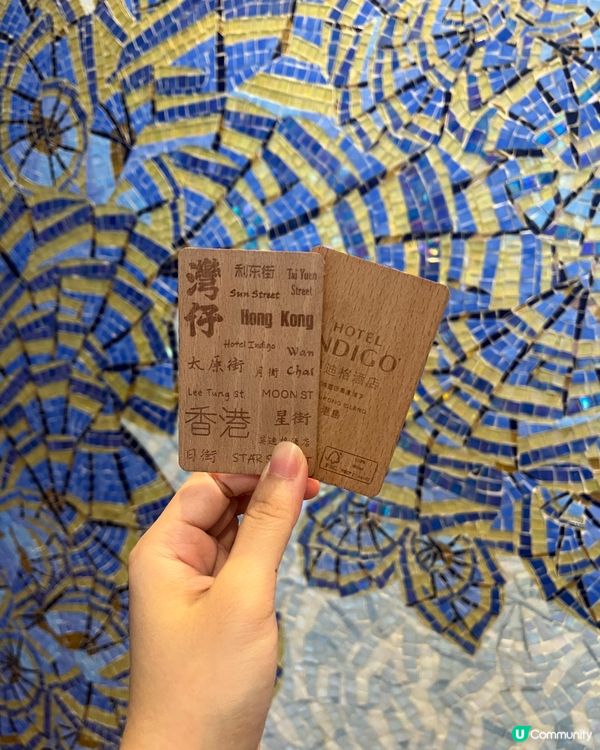 灣仔
利东街
Tai Yuen Street
Sun Street
Hong Kong
Hotel Indigo
Wan Chai
太原街
月街
Lee Tung St
MOON ST
香港
星街
英迪格酒店
日街
STAR S
HOTEL
NDIGO
迪格酒店
ONG ISLAND
港島
FSC
U Community